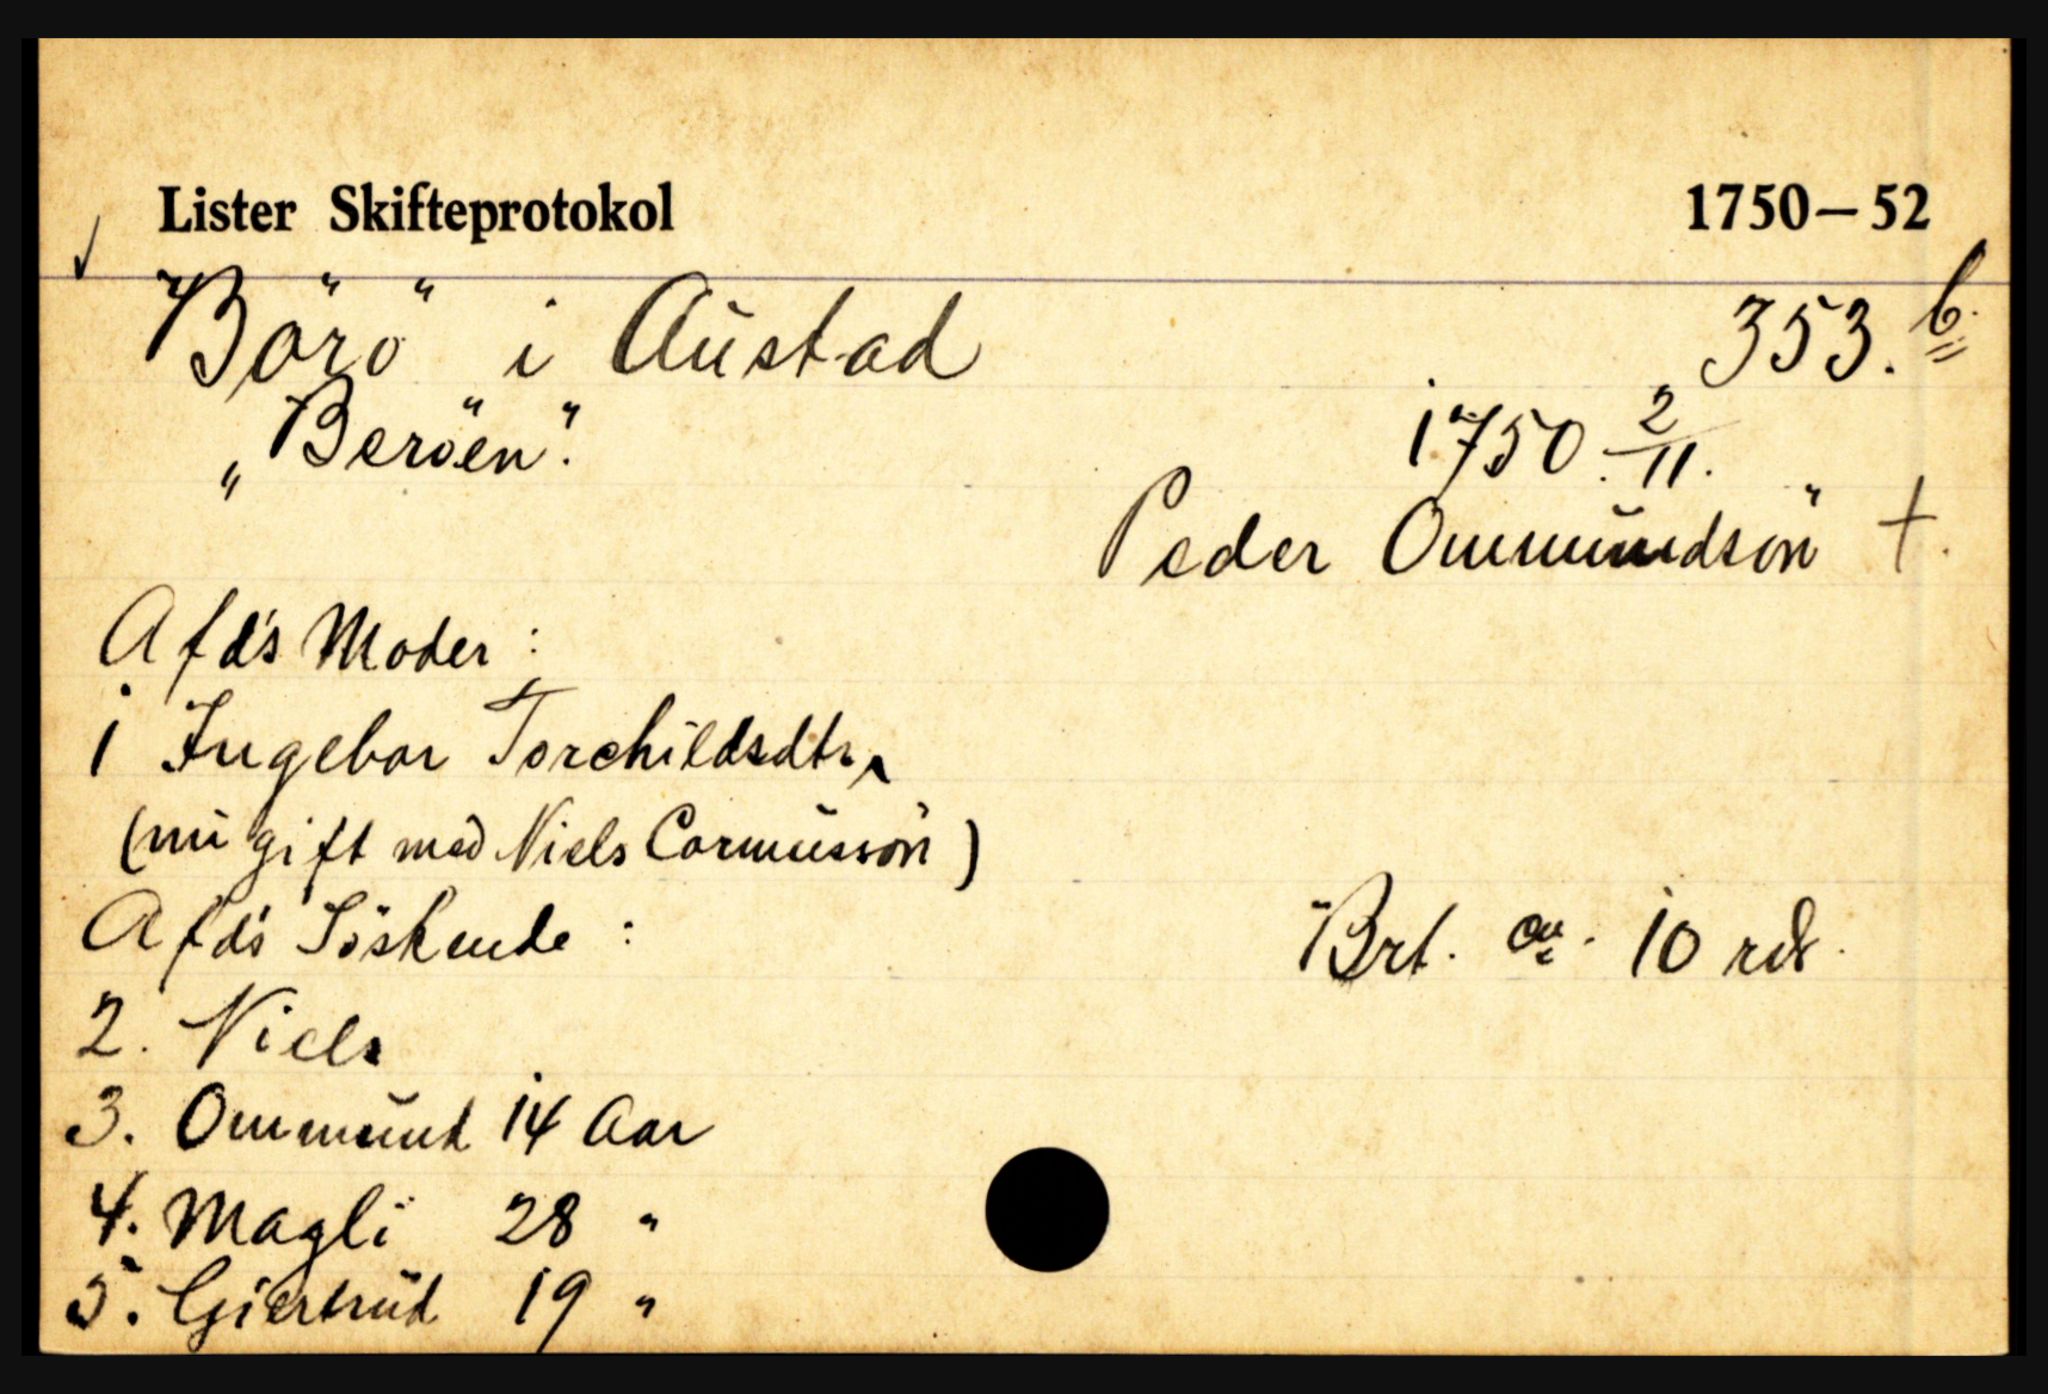 Lister Skifteprotokol 1750–52
Börö i Austad 353.b.
„Beröen". 1750 2/11.
Peder Ommundsön †.
Afd's Moder:
1 Ingebor Torchildsdtr,
(nu gift med Niels Cormusson)
Afd's Söskende: Brt. 10 rds.
2. Niels
3. Ommund 14 Aar
4. Magli 28 "
5. Giertrud 19 "